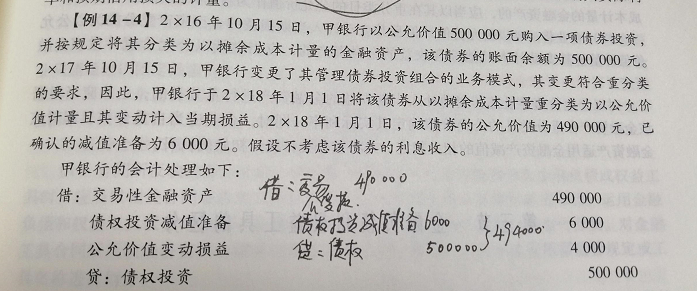 【例14-4】2×16年10月15日，甲银行以公允价值500 000元购入一项债券投资，
并按规定将其分类为以摊余成本计量的金融资产，该债券的账面余额为500 000元。
2×17年10月15日，甲银行变更了其管理债券投资组合的业务模式，其变更符合重分类
的要求，因此，甲银行于2×18年1月1日将该债券从以摊余成本计量重分类为以公允价
值计量且其变动计入当期损益。2×18年1月1日，该债券的公允价值为490 000元，已
确认的减值准备为6 000元。假设不考虑该债券的利息收入。
甲银行的会计处理如下：
借：交易 490 000
借：交易性金融资产 490 000
债权投资减值准备 6000 }494000
债权投资减值准备 6 000
贷：债权 500000
公允价值变动损益 4 000
贷：债权投资 500 000